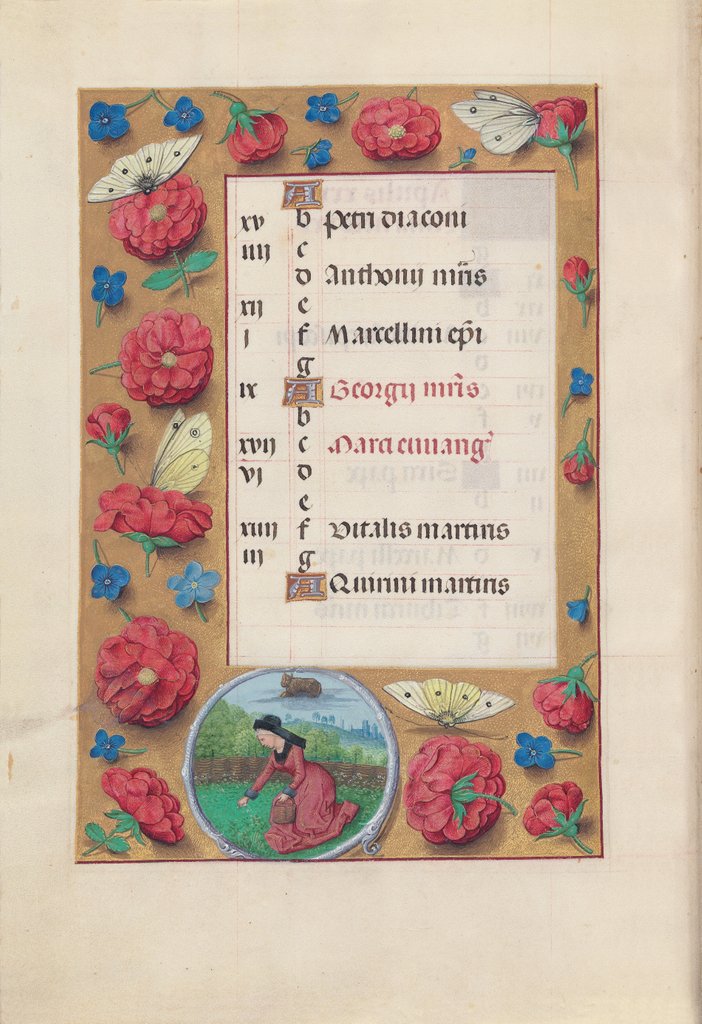 A
xv b Petri diaconi
iiii c
d Anthonij mr̄is
xii e
i f Marcellini ep̄i
g
ix A Georgij mr̄is
b
xvii c Marci euuang͛
vi d
e
xiiii f Vitalis martiris
iii g
A Quirini martiris